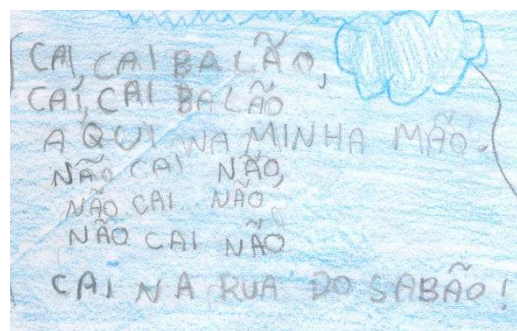 CAI, CAI BALÃO,
CAI, CAI BALÃO
A QUI NA MINHA MÃO.
NÃO CAI NÃO,
NÃO CAI NÃO
NÃO CAI NÃO
CAI NA RUA DO SABÃO!